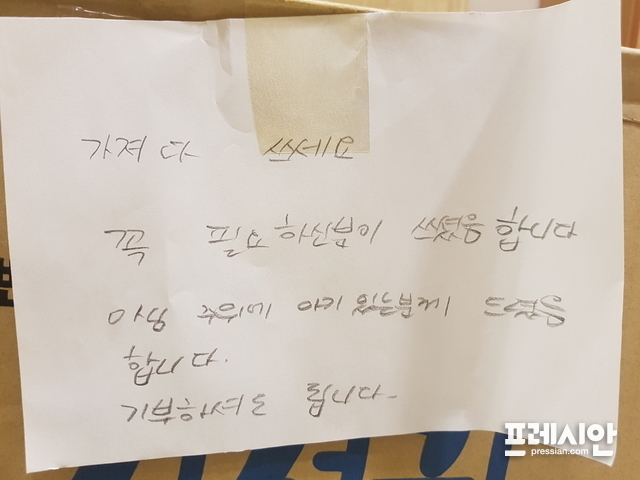 가져다 쓰세요
꼭 필요하신분이 쓰셨음 합니다
아님 주위에 아기 있는분께 드렸음
합니다.
기부하셔도 됩니다.
프레시안
pressian.com